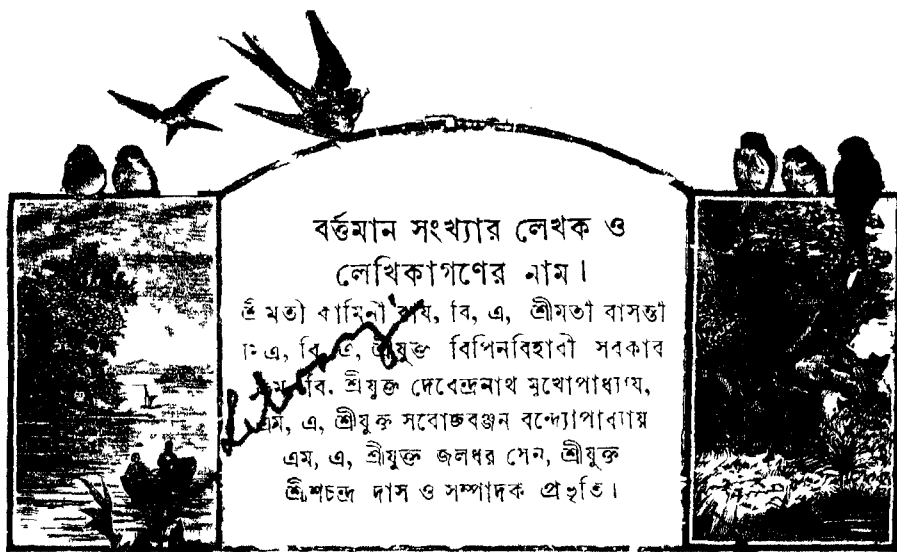 বর্ত্তমান সংখ্যার লেখক ও
লেখিকাগণের নাম।
শ্রীমতী কামিনী রায়, বি, এ, শ্রীমতী বাসন্তী
এ, বি, শ্রীযুক্ত বিপিনবিহারী সরকার
বি. শ্রীযুক্ত দেবেন্দ্রনাথ মুখোপাধ্যায়,
এম, এ, শ্রীযুক্ত সরোজরঞ্জন বন্দ্যোপাধ্যায়
এম, এ, শ্রীযুক্ত জলধর সেন, শ্রীযুক্ত
শ্রীশচন্দ্র দাস ও সম্পাদক প্রভৃতি।